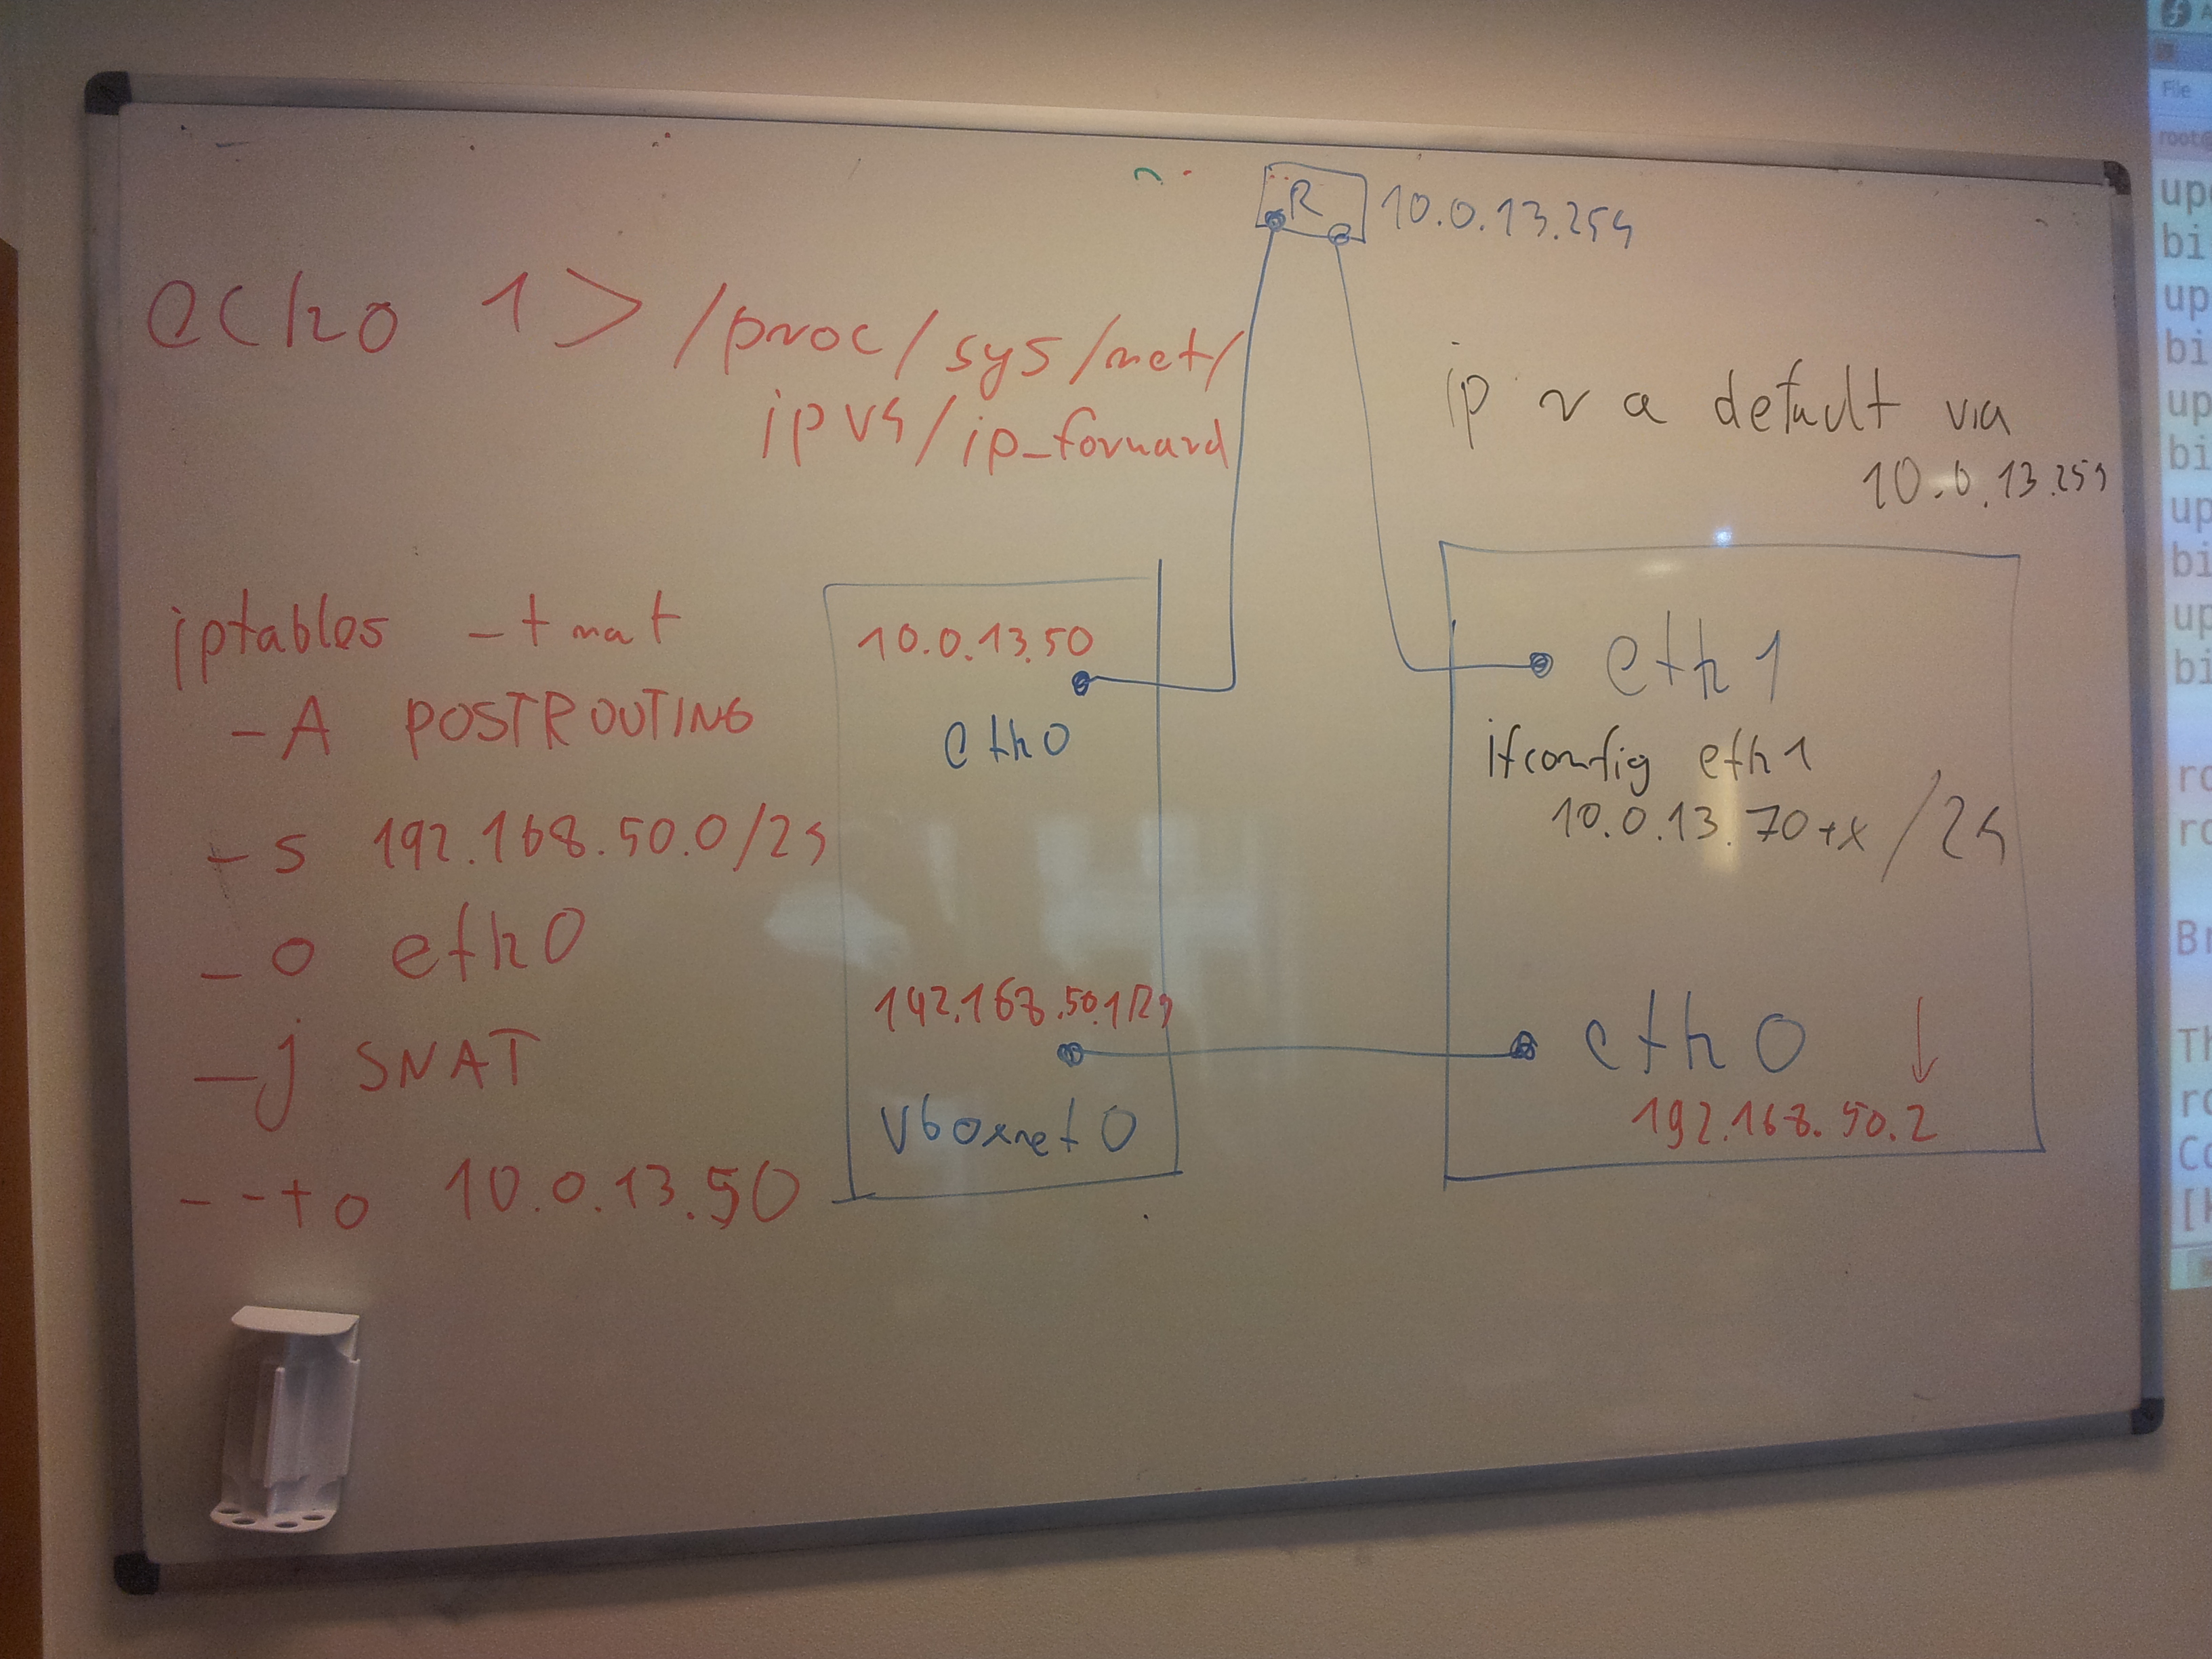 R 10.0.13.254
echo 1 > /proc/sys/net/
ipv4/ip_forward
ip r a default via
10.0.13.254
iptables -t nat
-A POSTROUTING
-s 192.168.50.0/24
-o eth0
-j SNAT
--to 10.0.13.50
10.0.13.50
eth0
192.168.50.1/24
vboxnet0
eth1
ifconfig eth1
10.0.13.70+x/24
eth0
192.168.50.2
File
root@
up
bi
up
bi
up
bi
up
bi
up
bi
ro
ro
Br
Th
ro
Co